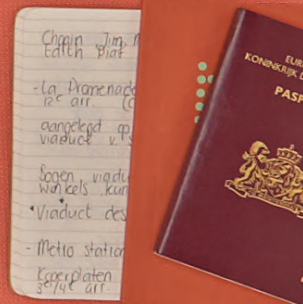 Chopin Jim M
Edith Piaf
- La Promenade
12e arr (C
aangelegd op
viaduct v. s
Bogen viadu
winkels kun
*Viaduct des
- Metro station
Koperplaten
3e/4e arr
EUR
KONINKRIJK D
PASP